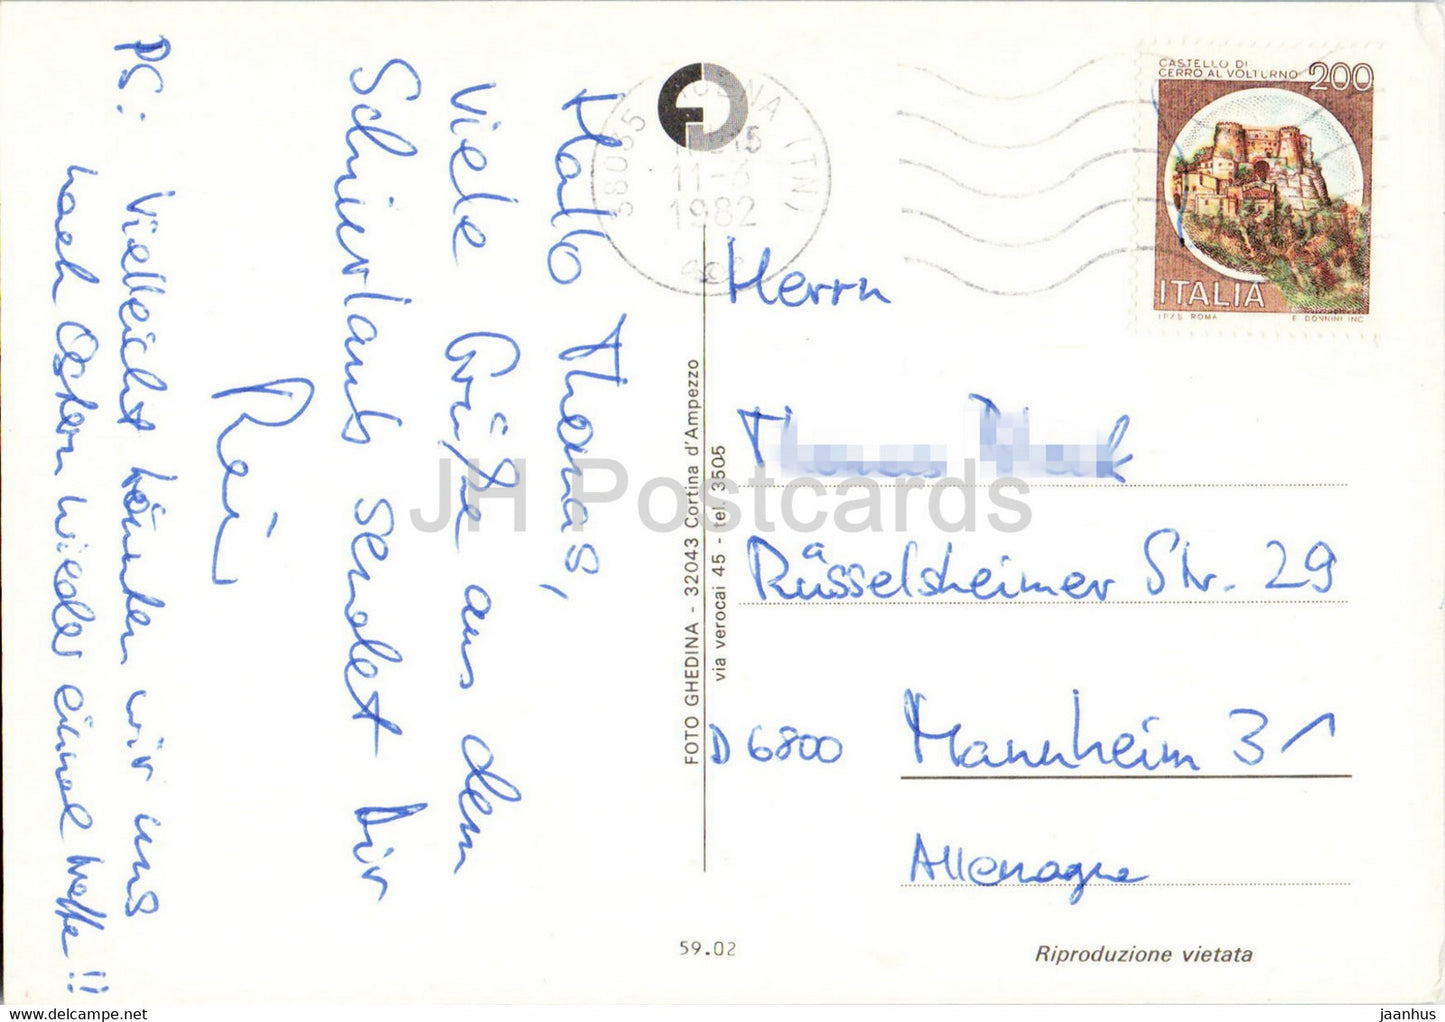 Hallo Thomas,
Viele Grüße aus dem
Schiurlaub sendet Dir
Rei
PS: Vielleicht könnten wir uns
nach Ostern wieder einmal treffen!!
38035
11-3
1982
CASTELLO DI
CERRO AL VOLTURNO 200
ITALIA
I.P.Z.S. ROMA E. DONNINI INC.
Herrn
Rüsselsheimer Str. 29
D 6800 Mannheim 31
Allemagne
FOTO GHEDINA - 32043 Cortina d'Ampezzo
via verocai 45 - tel. 3505
59.02
Riproduzione vietata
JH Postcards
jaanhus @ hipstamp.com